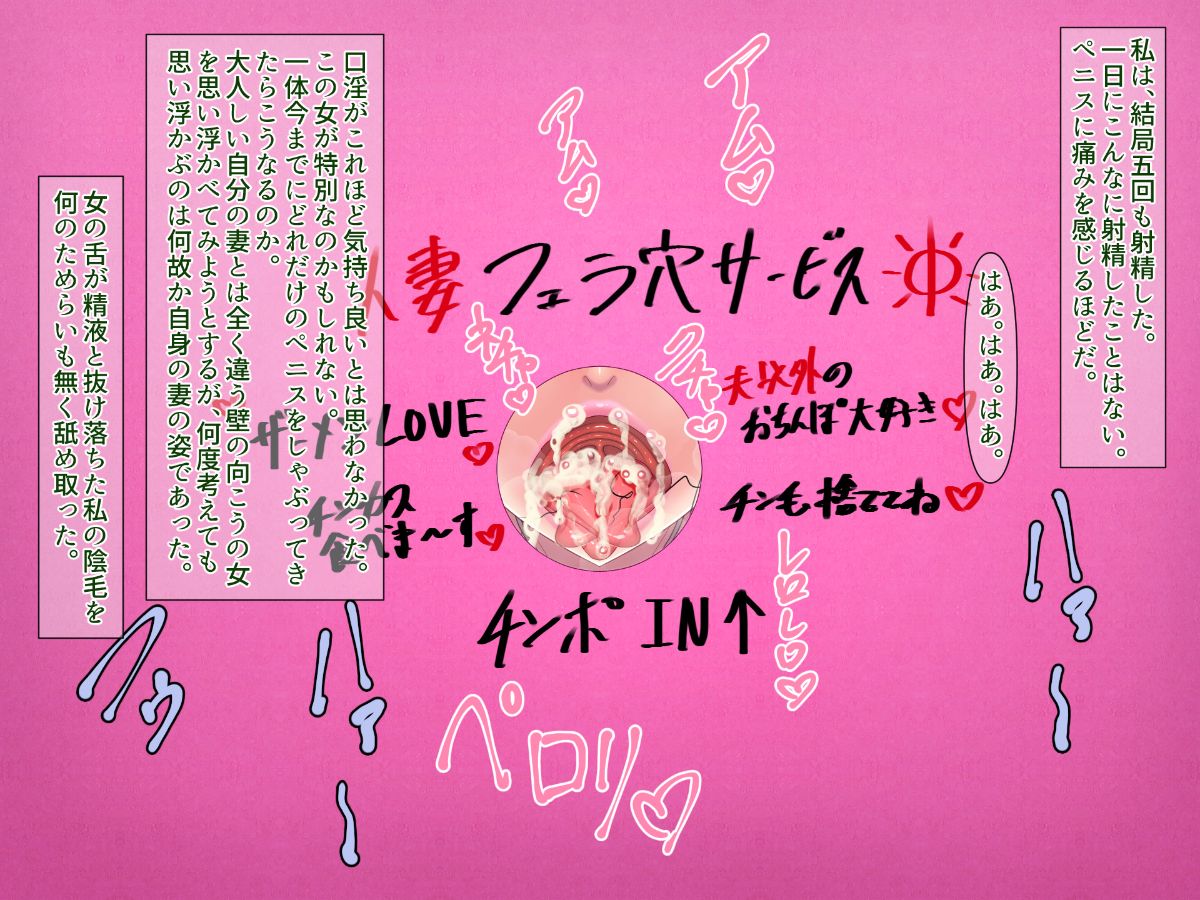 私は、結局五回も射精した。
一日にこんなに射精したことはない。
ペニスに痛みを感じるほどだ。
はあ。はあ。はあ。
アムロ♡
アム♡
人妻フェラ穴サービス中
夫以外の
おちんぽ大好き♡
チン毛捨ててね♡
ザーメンLOVE
♡
チンカス
食べま〜す♡
クチャ♡
ネチャ♡
チンポIN↑
レロレロ♡
ペロリ♡
ハァ〜
口淫がこれほど気持ち良いとは思わなかった。
この女が特別なのかもしれない。
一体今までにどれだけのペニスをしゃぶってき
たらこうなるのか。
大人しい自分の妻とは全く違う壁の向こうの女
を思い浮かべてみようとするが、何度考えても
思い浮かぶのは何故か自身の妻の姿であった。
ハァ〜
女の舌が精液と抜け落ちた私の陰毛を
何のためらいも無く舐め取った。
ウゥ